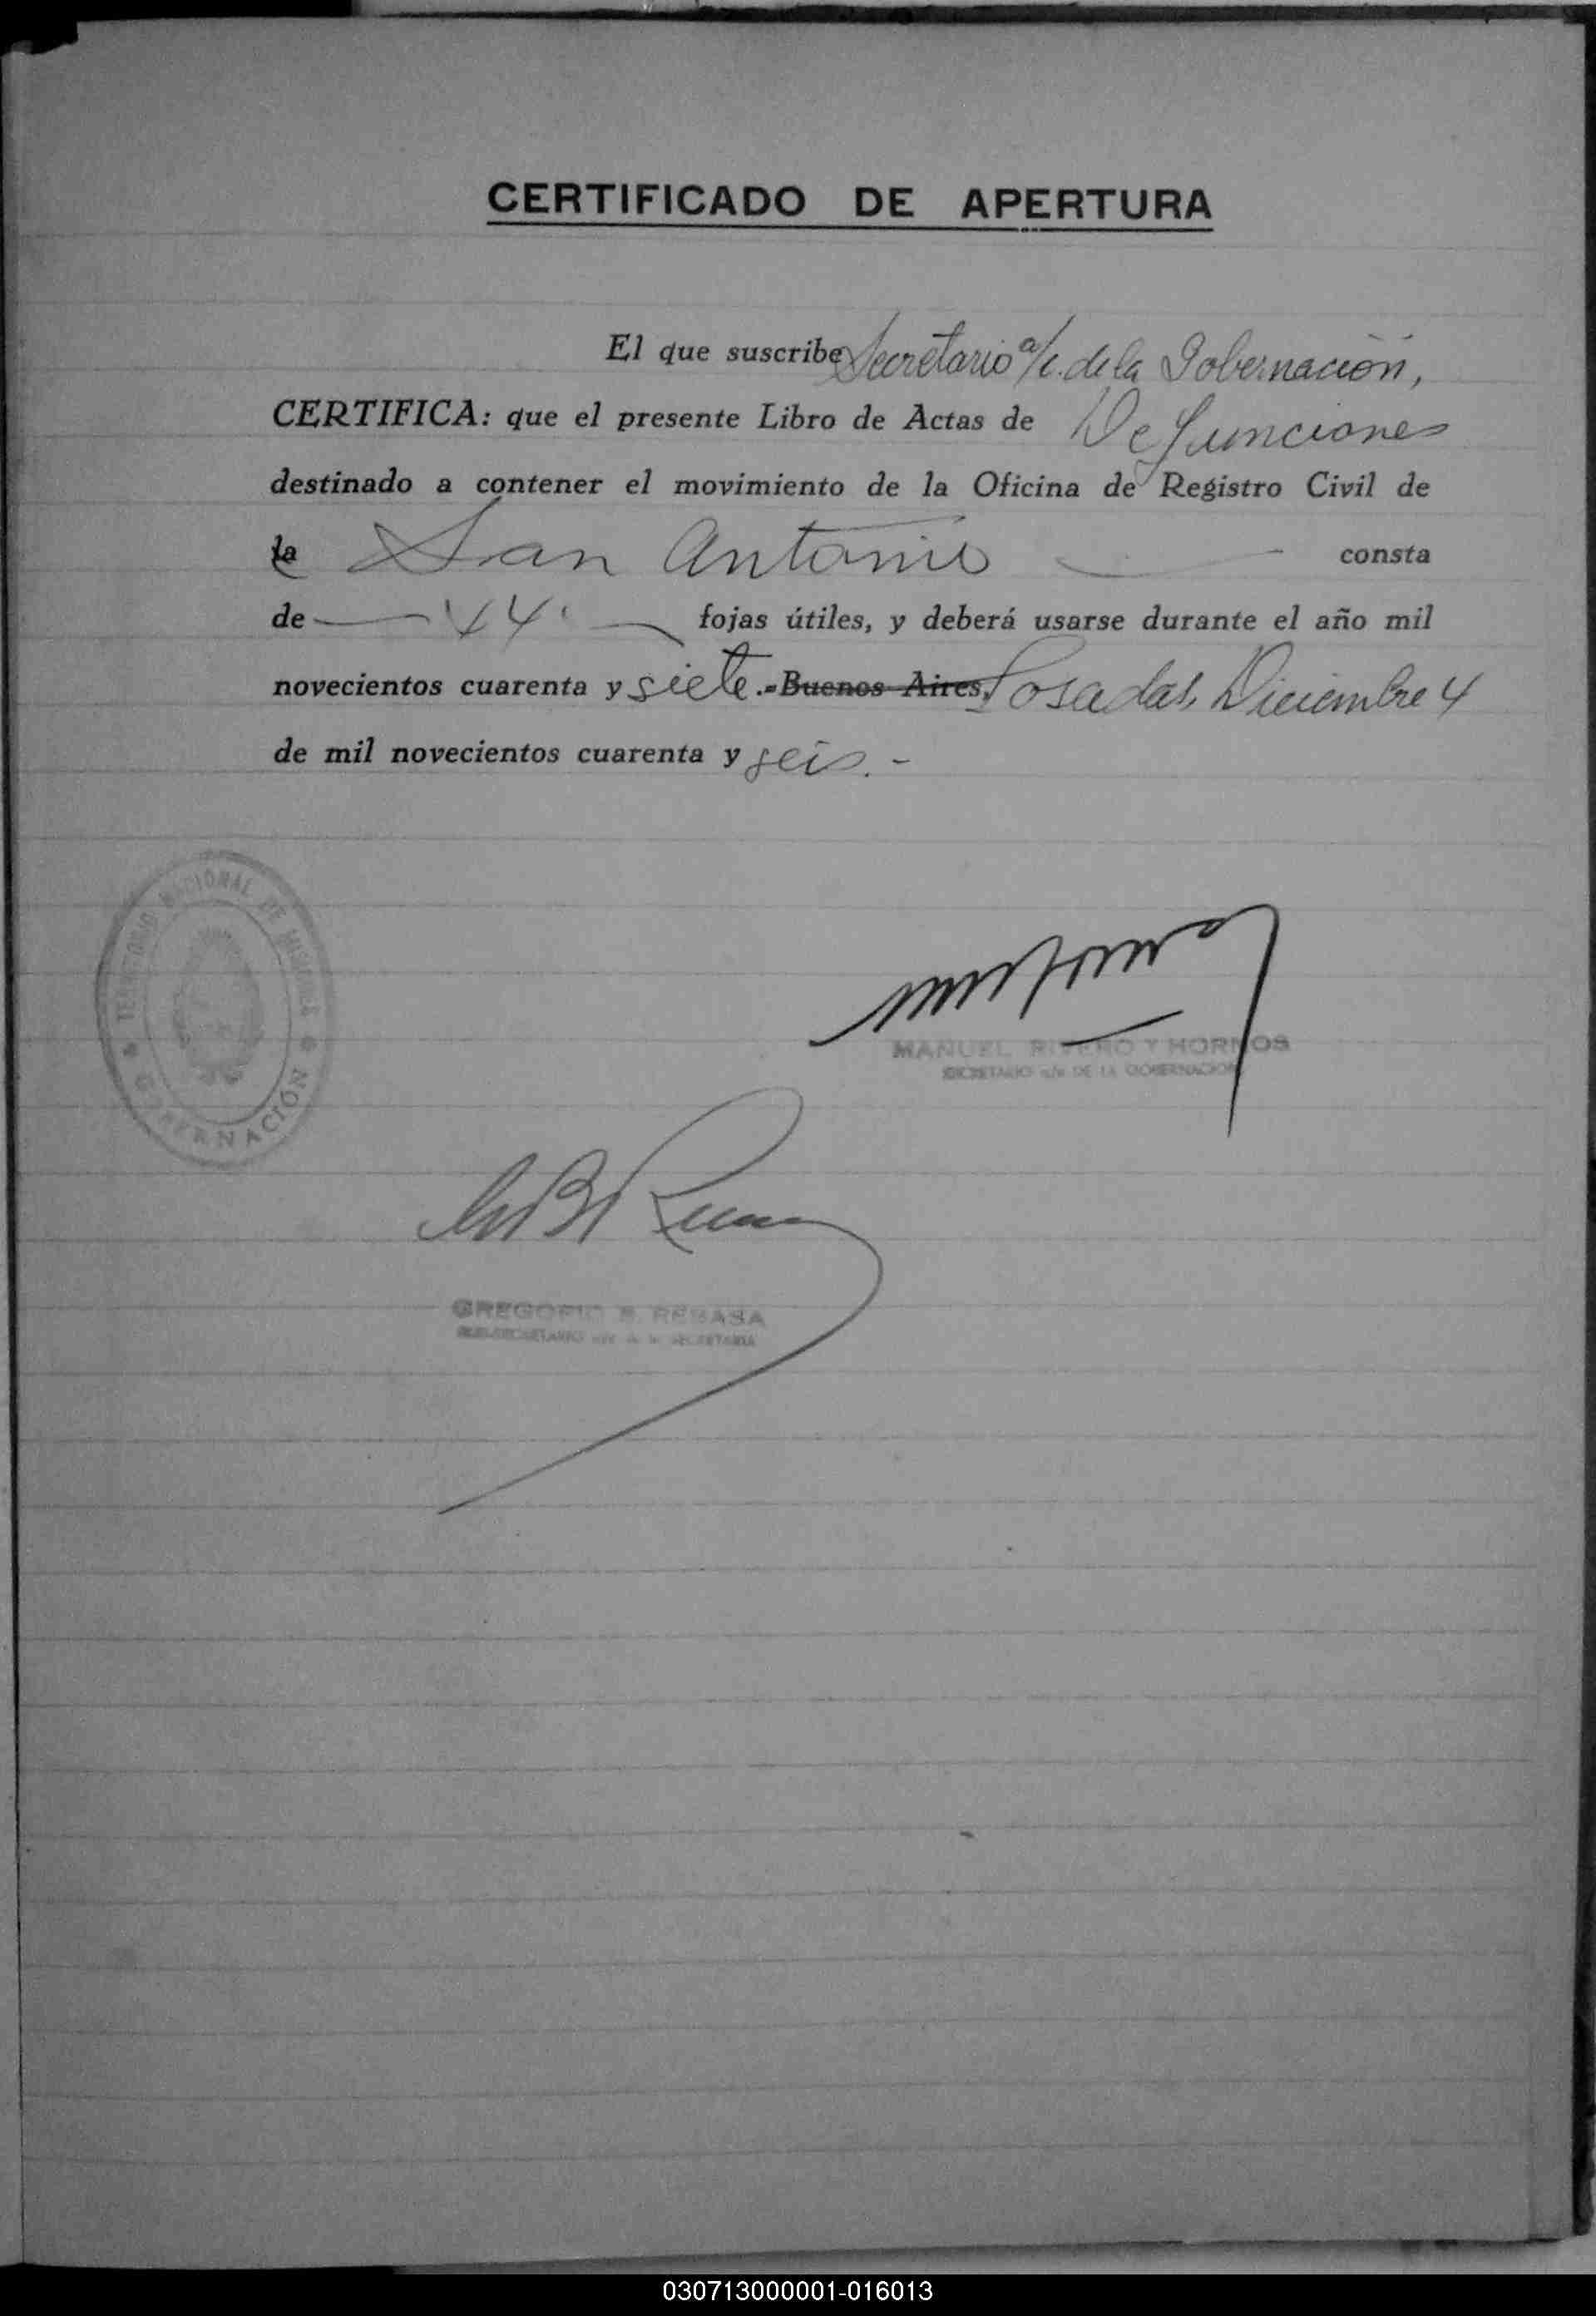 CERTIFICADO DE APERTURA
El que suscribe Secretario a/c. de la Gobernación,
CERTIFICA: que el presente Libro de Actas de Defunciones
destinado a contener el movimiento de la Oficina de Registro Civil de
la San Antonio consta
de 44 fojas útiles, y deberá usarse durante el año mil
novecientos cuarenta y siete.-Buenos Aires, Posadas, Diciembre 4
de mil novecientos cuarenta y seis.-
TERRITORIO NACIONAL DE MISIONES
GOBERNACIÓN
MANUEL RIVERO Y HORNOS
SECRETARIO a/c DE LA GOBERNACION
GREGORIO B. REBASA
SUB-SECRETARIO a/c de la SECRETARIA
030713000001-016013